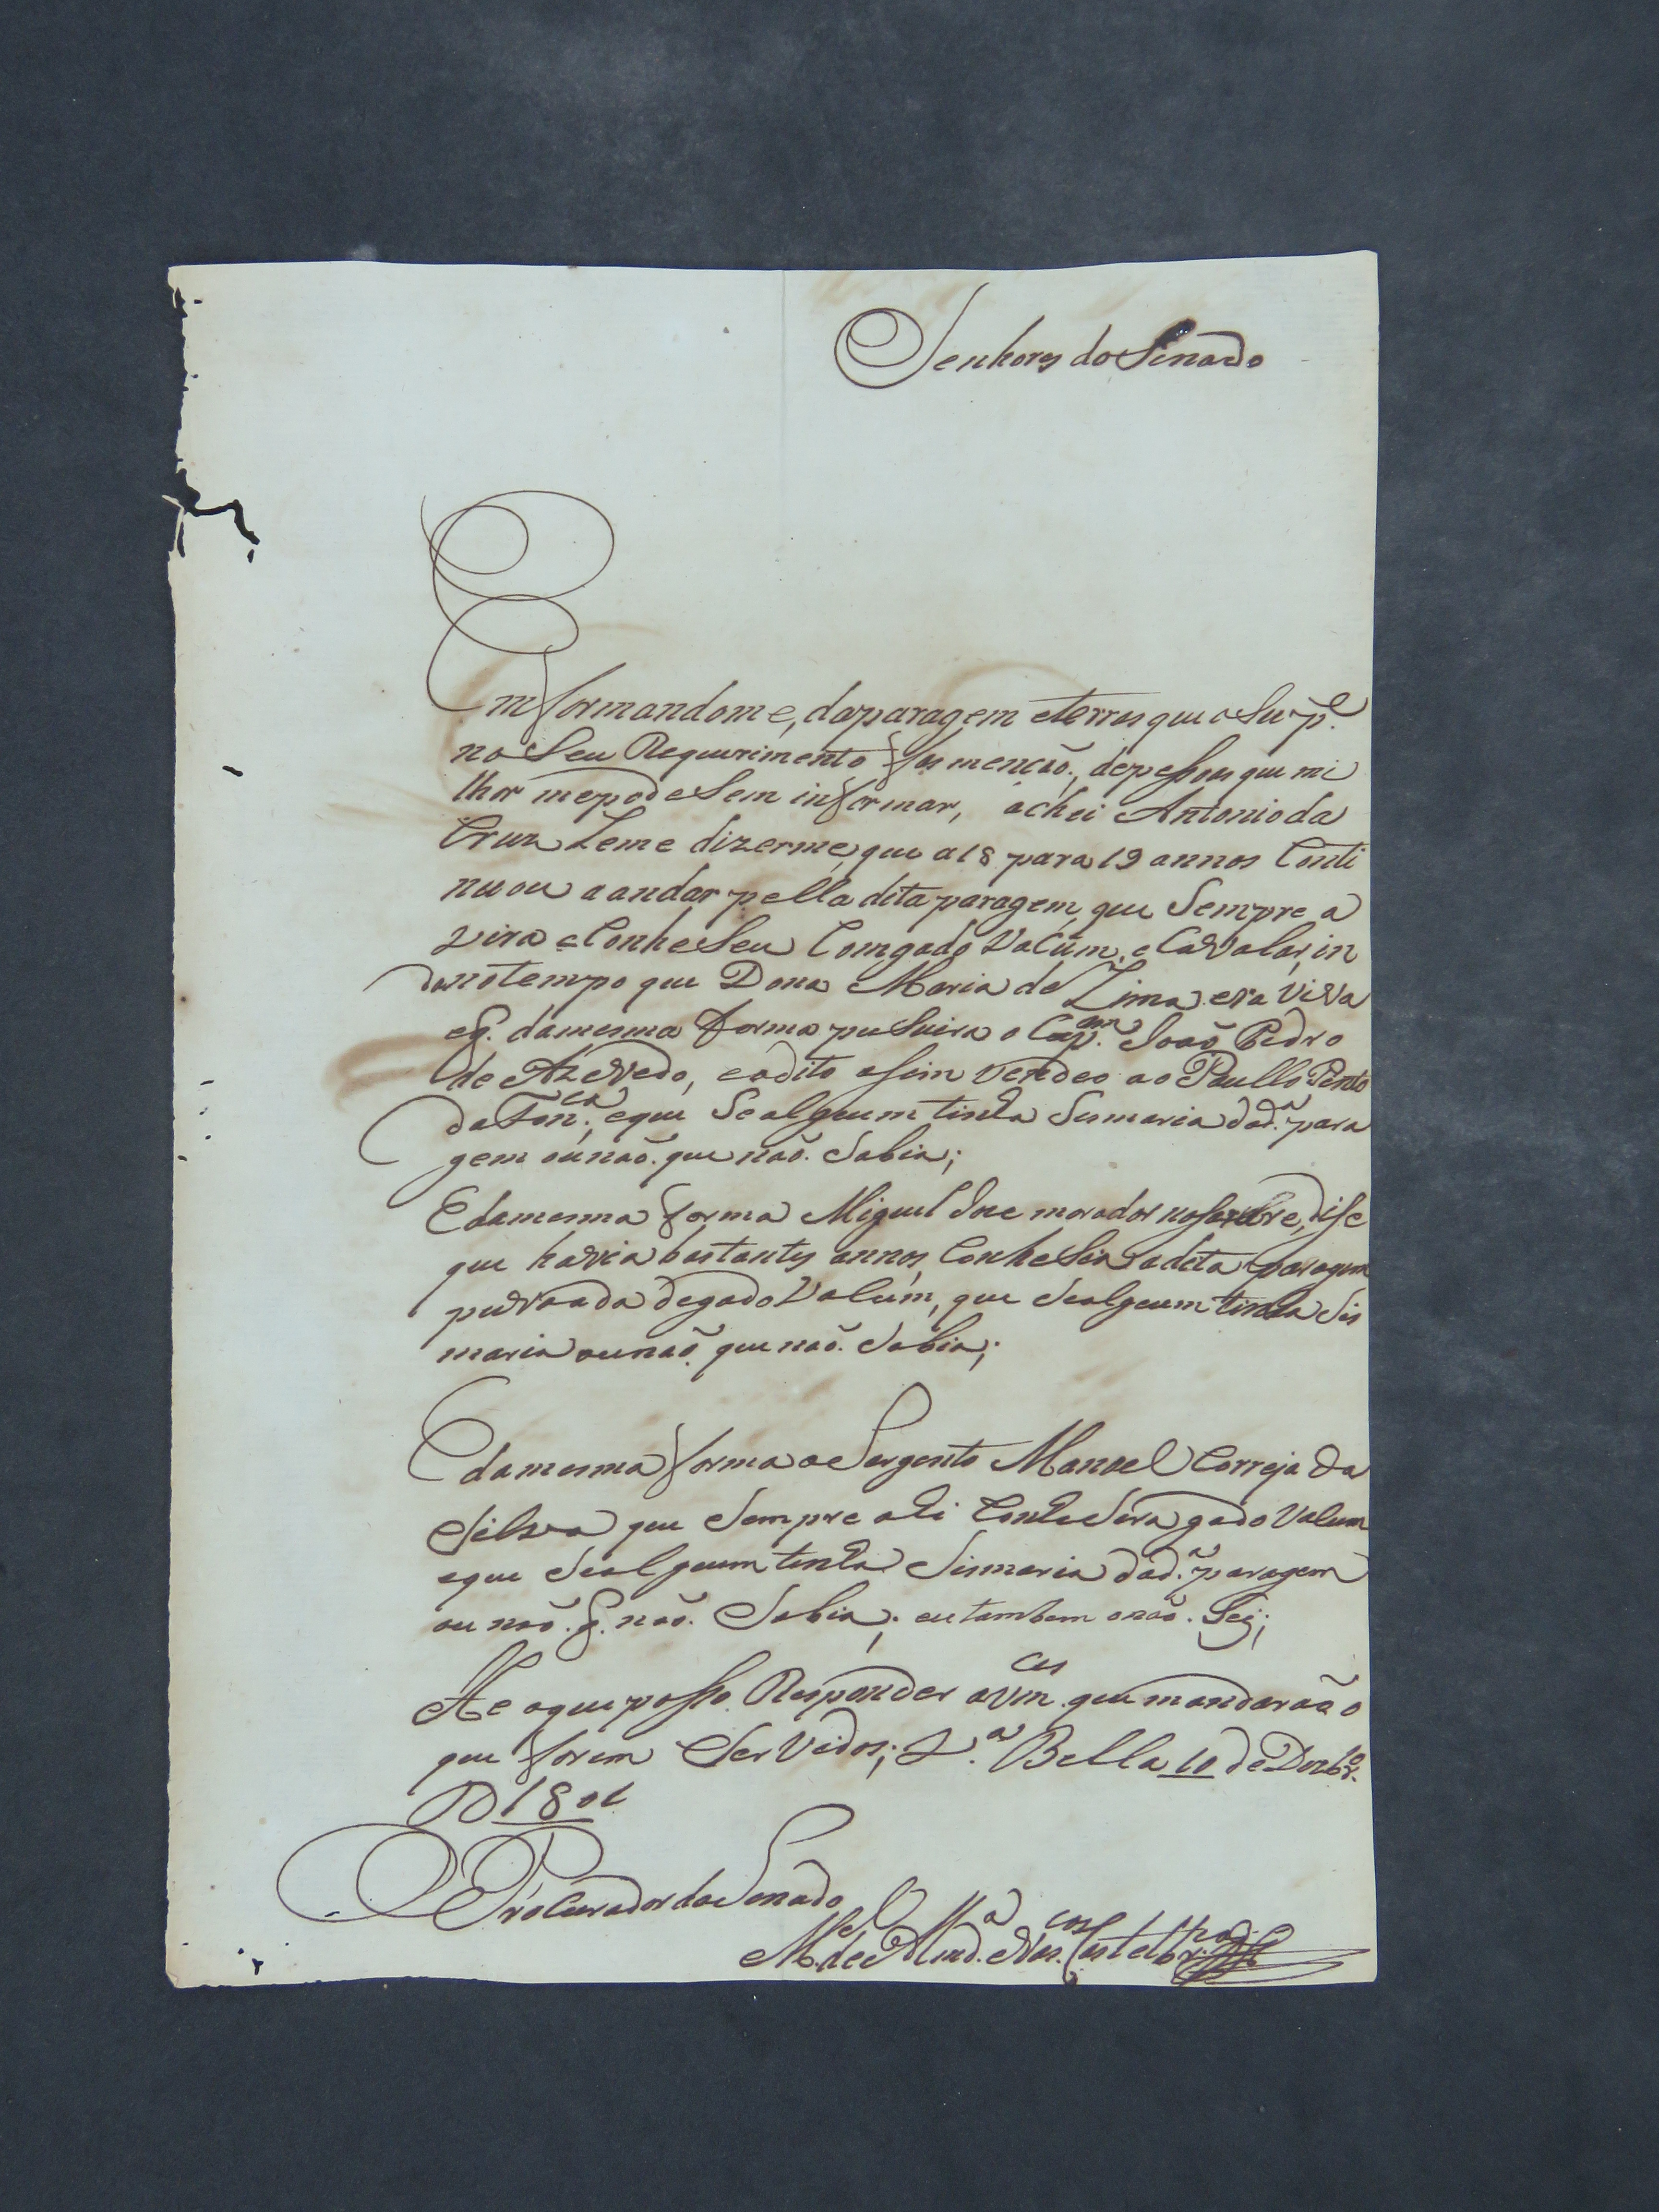 Senhores do Senado
Emformandome, daparagem eterras que o Sup.e
no Seu Requerimento fas mencaõ, depessoas que mi
lhor mepodeSem informar, achei Antonio da
Cruz Leme dizerme, que a 18 para 19 annos Conti
nuou a andar pella dita paragem, que Sempre a
vira eConheSeu Comgado Vacúm, e CaValar, in
da notempo que Dona Maria de Lima era ViVa
eq. damesma forma puSuira o Cap.am Joaõ Pedro
de AzeVedo, eodito asim Vendeo ao Paullo Pento
daFon.ca, eque Sealgeum tinha Sismaria dad.a para
gem ounaõ. que naõ. Sabia;
Edamesma forma Miguel Joze morador no dise
que havia bastantes annos, ConheSia adita paragem
puvoada degado Vacúm, que Sealgeum tinha Sis
maria ounaõ. que naõ. Sabia;
Edamesma forma oSargento Manoel Correja da
Silva que Sempre ali ConheSera gado Vacum
eque Sealgeum tinha Sismaria dad.a paragem
ou naõ. q. naõ. Sabia; eu tambem onaõ. Sej;
He oque posso Responder aVm.ces que mandaraão
que forem SerVidos; V.a Bella 10 de Dezbr.o
D 1801
Procurador do Senado
M.el de Mir.da Castelbr.